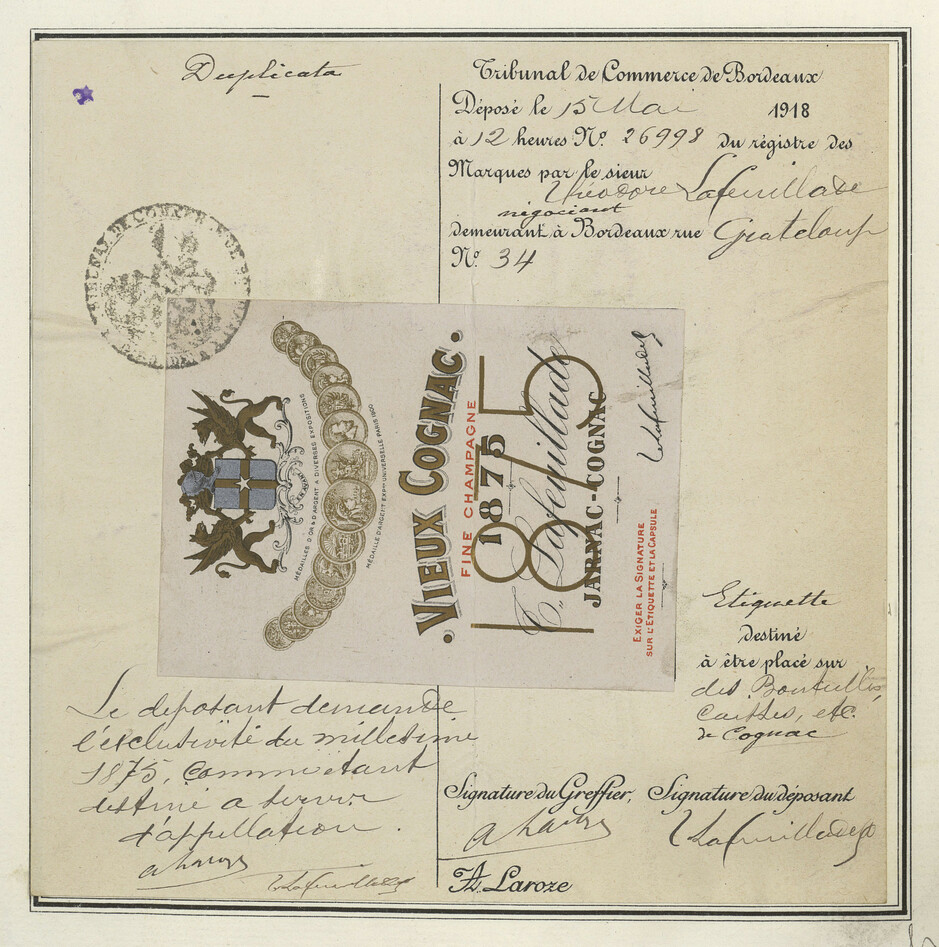 Duplicata
Tribunal de Commerce de Bordeaux
Déposé le 15 Mai 1918
à 12 heures No. 26998 du régistre des
Marques par le sieur
Théodore Lafeuillade
négociant
demeurant à Bordeaux rue Grateloup
No. 34
MÉDAILLES D'OR & D'ARGENT A DIVERSES EXPOSITIONS
MÉDAILLE D'ARGENT EXPON UNIVERSELLE PARIS 1900
. VIEUX COGNAC .
FINE CHAMPAGNE
1875
1875
T. Lafeuillade
JARNAC-COGNAC
EXIGER LA SIGNATURE
SUR L'ETIQUETTE ET LA CAPSULE
Etiquette
destiné
à être placé sur
des Bouteilles,
caisses, etc.
de Cognac
Le déposant demande
l'exclusivité du millesime
1875, comme étant
destiné a servir
d'appellation.
Signature du Greffier, Signature du déposant
A. Laroze